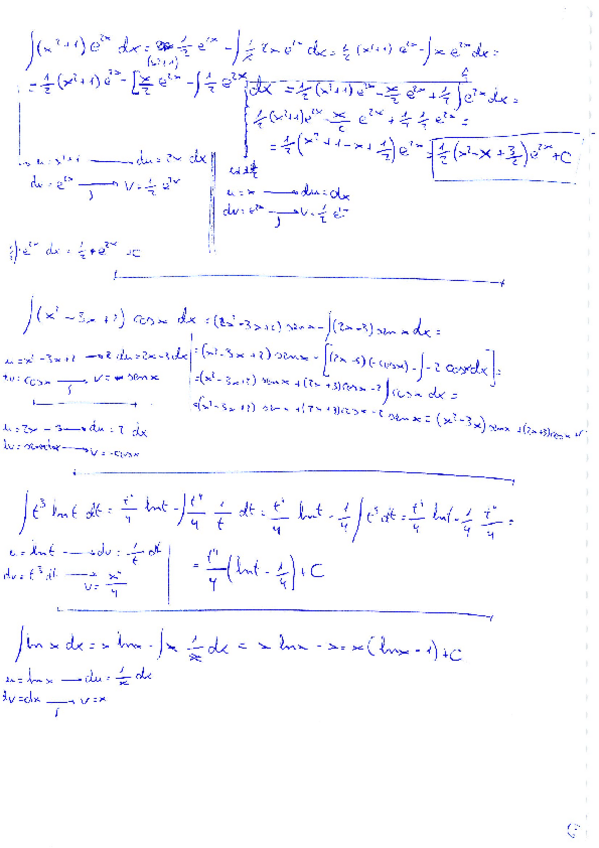 ∫(x²+1) e^{2x} dx = (x²+1) 1/2 e^{2x} - ∫ 1/2 2x e^{2x} dx = 1/2 (x²+1) e^{2x} - ∫ x e^{2x} dx =
= 1/2 (x²+1) e^{2x} - [x/2 e^{2x} - ∫ 1/2 e^{2x} dx = 1/2 (x²+1) e^{2x} - x/2 e^{2x} + 1/2 ∫ e^{2x} dx =
1/2 (x²+1) e^{2x} - x/2 e^{2x} + 1/2 1/2 e^{2x} =
= 1/2 (x²+1-x+1/2) e^{2x} = 1/2 (x²-x+3/2) e^{2x} + C
u = x²+1 → du = 2x dx
dv = e^{2x} →∫ v = 1/2 e^{2x}
u = x → du = dx
dv = e^{2x} →∫ v = 1/2 e^{2x}
e^{2x} dx = 1/2 e^{2x} + C
∫(x² - 3x + 2) cosx dx = (x²-3x+2) senx - ∫(2x-3) senx dx =
u = x²-3x+2 → du = 2x-3 dx
dv = cosx →∫ v = senx
= (x²-3x+2) senx - [(2x-3)(-cosx) - ∫ -2 cosx dx] =
= (x²-3x+2) senx + (2x+3) cosx - 2 ∫ cosx dx =
(x²-3x+2) senx + (2x+3) cosx - 2 senx = (x²-3x) senx + (2x+3) cosx +
u = 2x - 3 → du = 2 dx
→ v = -cosx
∫ t³ lnt dt = t⁴/4 lnt - ∫ t⁴/4 1/t dt = t⁴/4 lnt - 1/4 ∫ t³ dt = t⁴/4 lnt - 1/4 t⁴/4 =
u = lnt → dv = 1/t dt
dv = t³ dt → v = x⁴/4
= t⁴/4 (lnt - 1/4) + C
∫ ln x dx = x lnx - ∫ x 1/x dx = x lnx - x = x (lnx - 1) + C
u = lnx → du = 1/x dx
dv = dx →∫ v = x